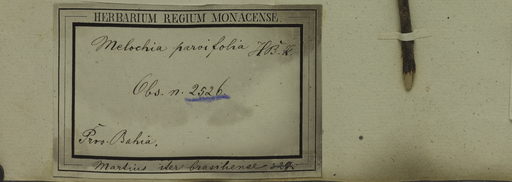 HERBARIUM REGIUM MONACENSE.
Melochia parvifolia HBK
Obs. n. 2526.
Prov. Bahia.
Martius iter brasiliense